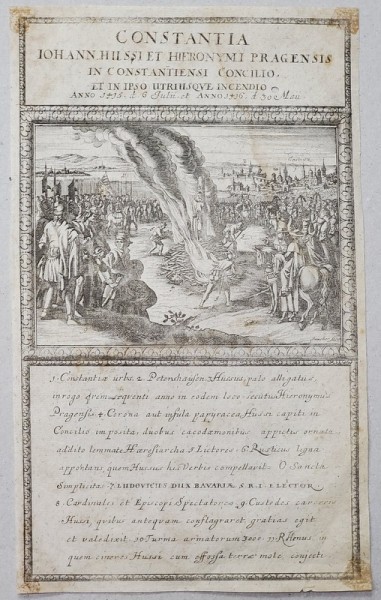 CONSTANTIA
IOHANN HUSSI ET HIERONYMI PRAGENSIS
IN CONSTANTIENSI CONCILIO.
ET IN IPSO UTRIUSQVE INCENDIO
ANNO 1415. d. 6 Julii et ANNO 1416. d. 30 Maii
1. Constantiæ urbs. 2. Petershausen. Hussus, palo allegatus,
in rogo 4. Corona aut infula papyracea Hussi capiti in
Concilio imposita, duobus cacodæmonibus appictis ornata
addito lemmate Hæresiarcha 5. Lictores. 6. Rusticus ligna
apportans, quem Hussus his verbis compellavit: O Sancta
Simplicitas 7. LUDOVICUS DUX BAVARIÆ S. R. I. ELECTOR.
8. Cardinales et Episcopi Spectatores 9. Custodes carceris
Hussi, quibus antequam conflagraret gratias egit
et valedixit 10. Turma armatorum 3000 11. Rhenus, in
quem cineres Hussi cum effossa terræ mole conjecti